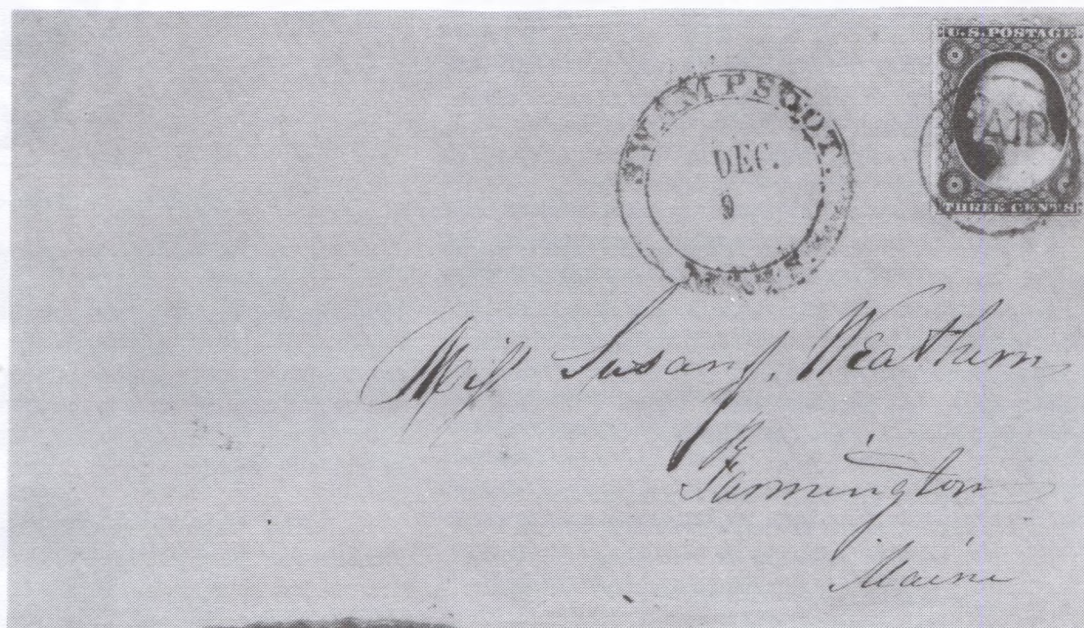 U.S. POSTAGE
PAID
THREE CENTS
SWAMPSCOT.
DEC.
9
MASS.
Miss Susan J. Weathern
Farmington
Maine